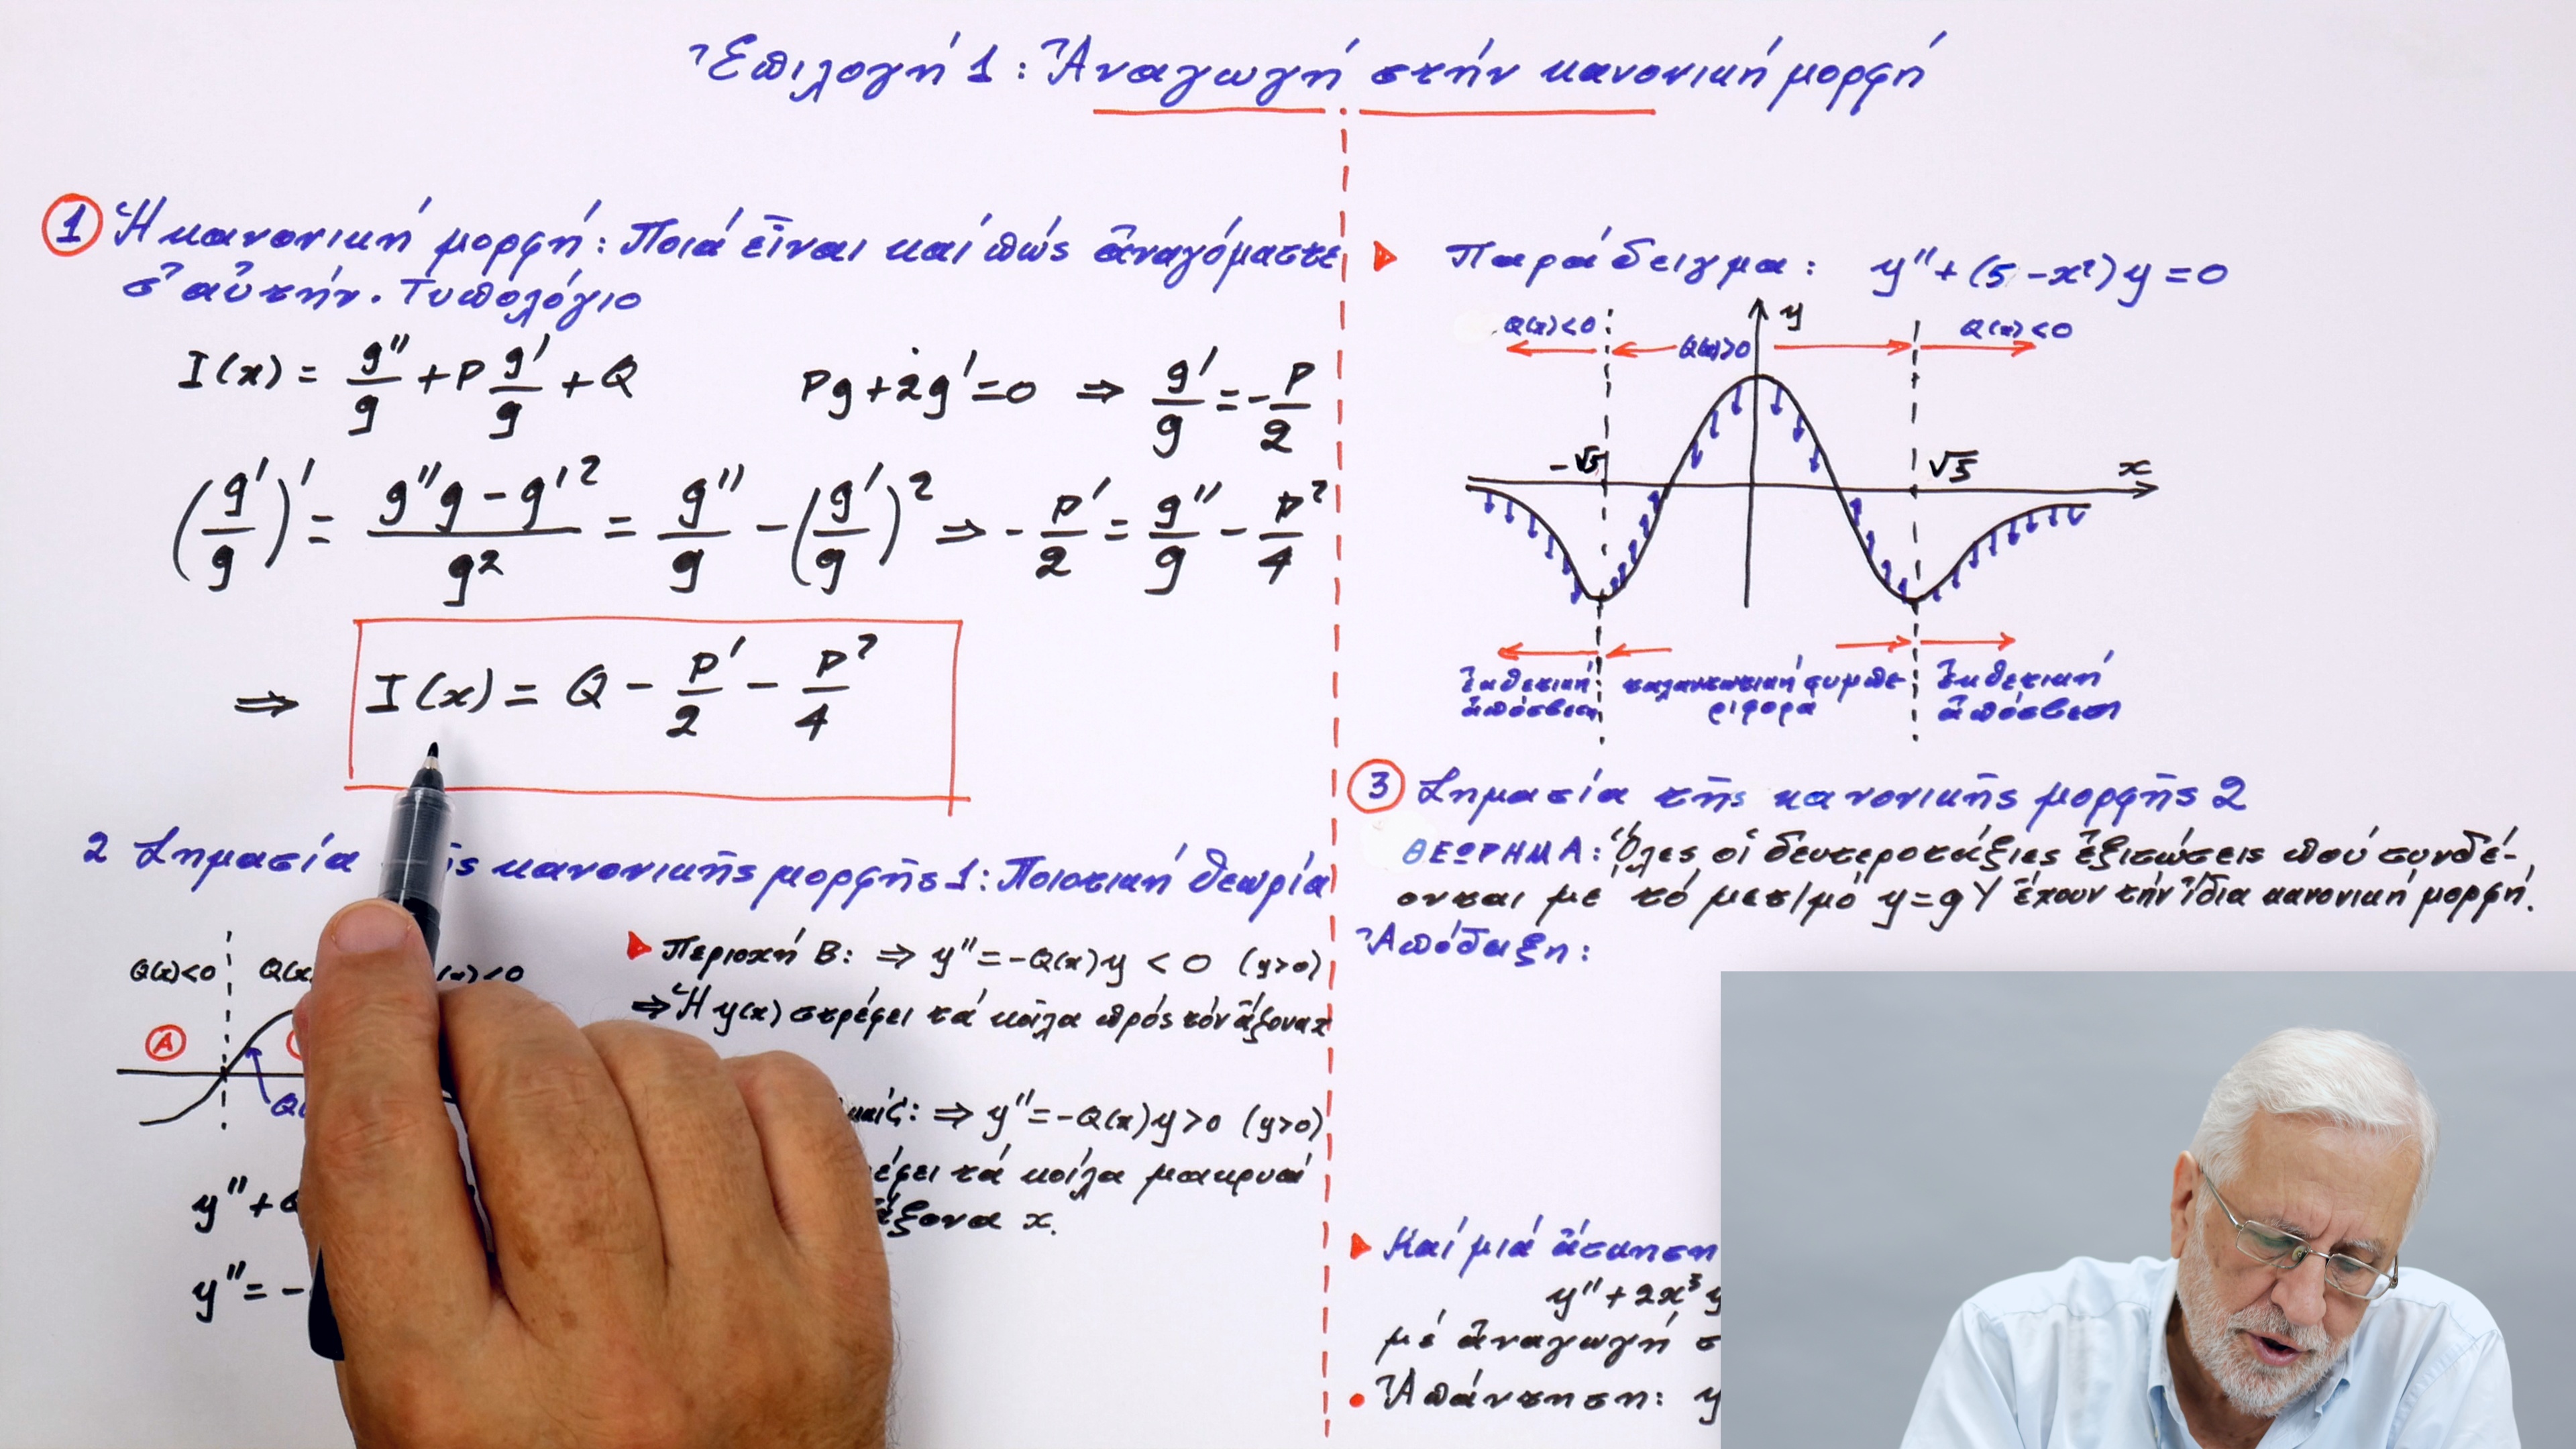 Ἐπιλογή 1: Ἀναγωγή στήν κανονική μορφή
1 Ἡ κανονική μορφή: Ποιά εἶναι καί πῶς ἀναγόμαστε
σ' αὐτήν. Τυπολόγιο
I(x) = g''/g + P g'/g + Q
Pg + 2g' = 0 ⇒ g'/g = -P/2
(g'/g)' = (g''g - g'²)/g² = g''/g - (g'/g)² ⇒ -P'/2 = g''/g - P²/4
⇒ I(x) = Q - P'/2 - P²/4
2 Σημασία ῆς κανονικῆς μορφῆς 1: Ποιοτική θεωρία
Q(x)<0 Q(x (x)<0
A
Q(
y'' +
y'' = -
Περιοχή Β: ⇒ y'' = -Q(x)y < 0 (y>0)
⇒ Ἡ y(x) στρέφει τά κοῖλα πρός τόν ἄξονα x
καί ζ: ⇒ y'' = -Q(x)y > 0 (y>0)
έφει τά κοίλα μακρυά
ἄξονα x.
Παράδειγμα: y'' + (5 - x²)y = 0
Q(x)<0 Q(x)>0 y Q(x)<0
-√5 √5 x
ἐκθετική ταλαντωτική συμπε ἐκθετική
ἀπόσβεση ριφορά ἀπόσβεση
3 Σημασία τῆς κανονικῆς μορφῆς 2
ΘΕΩΡΗΜΑ: Ὅλες οἱ δευτεροτάξιες ἐξισώσεις πού συνδέ-
ονται μέ τό μετ/μό y = gY ἔχουν τήν ἴδια κανονική μορφή.
Ἀπόδειξη:
Καί μιά ἄσκηση
y'' + 2x³ y
μέ ἀναγωγή σ
Ἀπάντηση: y